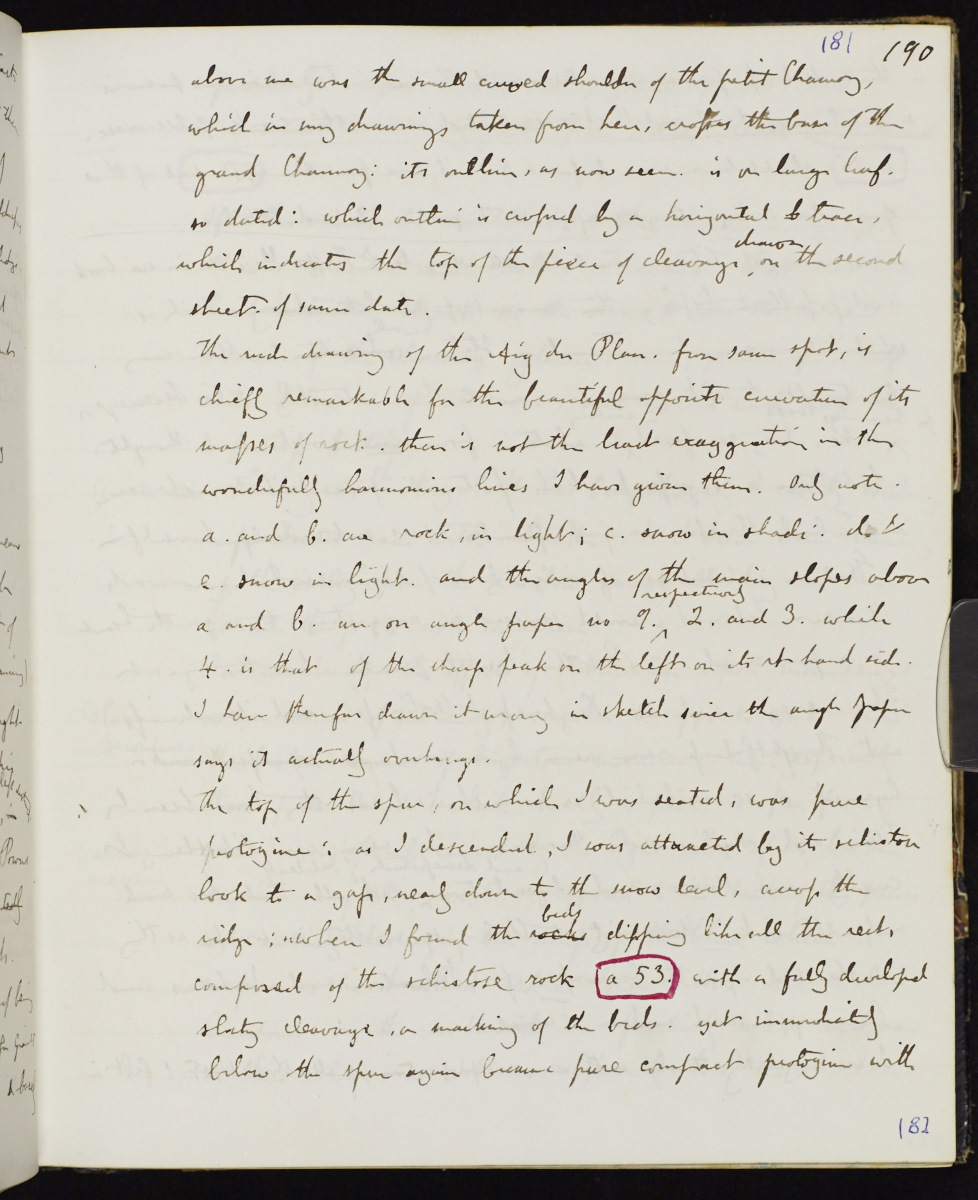 181 190
above me was the small curved shoulder of the petit Charmoz,
which in my drawings taken from here, crosses the base of the
grand Charmoz: its outline, as now seen. is on large leaf.
so dated: which outline is crossed by a horizontal trace,
which indicates the top of the piece of cleavage, drawn on the second
sheet. of same date.
The rude drawing of the Aig du Plan. from same spot, is
chiefly remarkable for the beautiful opposite curvature of its
masses of rock. there is not the least exaggeration in the
wonderfully harmonious lines I have given them. Only note.
a. and b. are rock, in light; c. snow in shade. d. &
e. snow in light. and the angles of the main slopes above
a and b. are on angle paper no 9. respectively 2. and 3. while
4. is that of the sharp peak on the left on its rt hand side.
I have therefore drawn it wrong in sketch since the angle paper
says it actually overhangs.
The top of the spur, on which I was seated, was pure
protogine: as I descended, I was attracted by its schistose
look to a gap, nearly down to the snow level, across the
ridge; where I found the rocks beds dipping like all the rest,
composed of the schistose rock a 53. with a fully developed
slaty cleavage, or marking of the beds. yet immediately
below the spur again became pure compact protogine with
182